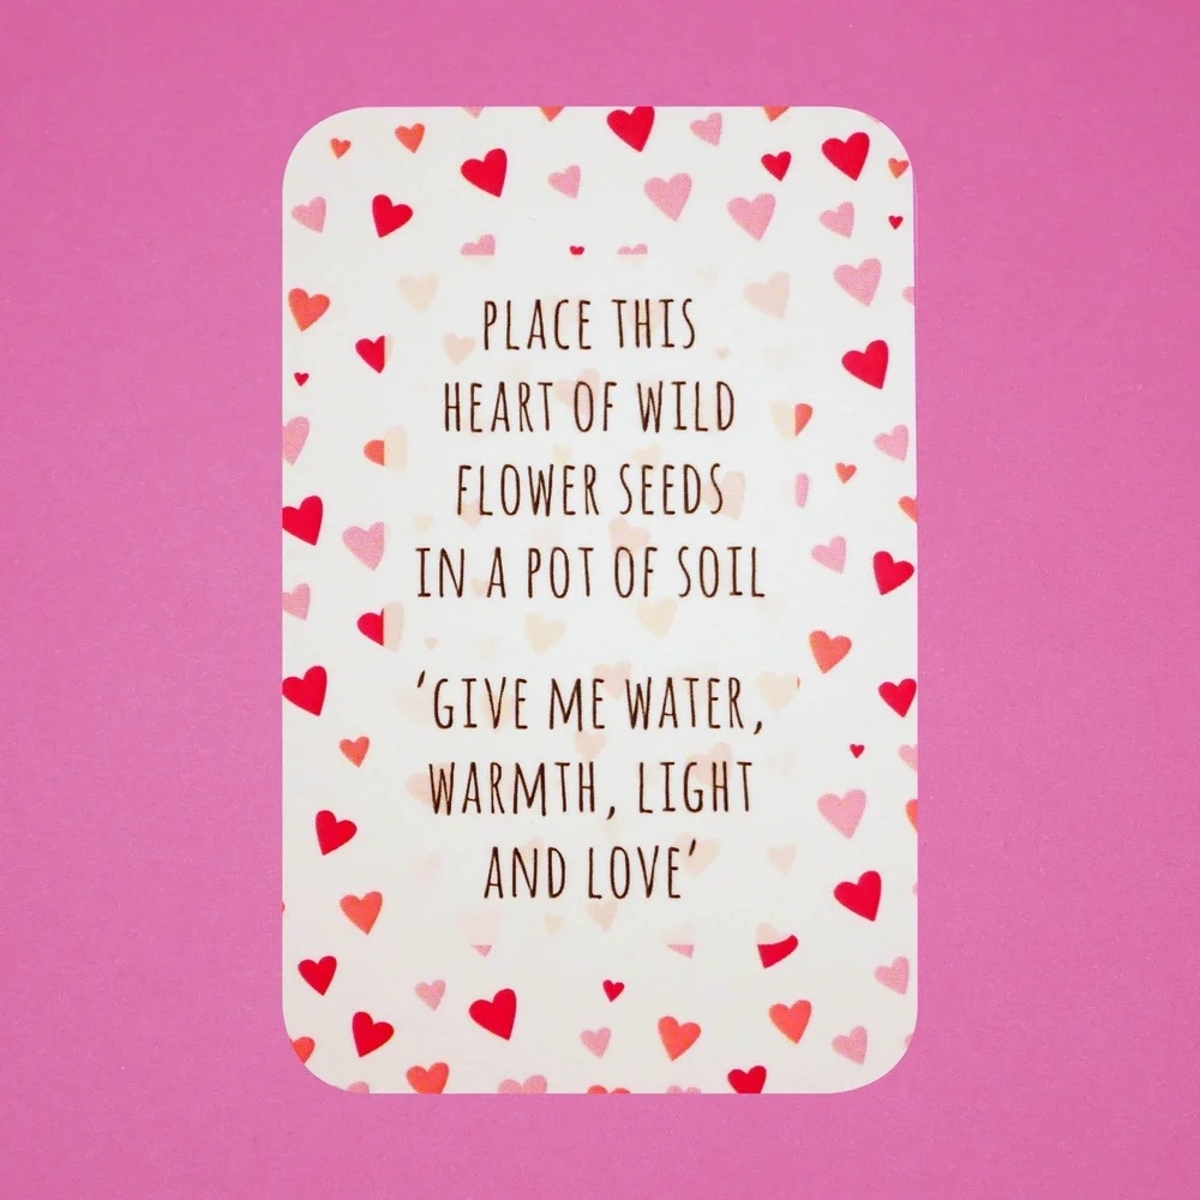 PLACE THIS
HEART OF WILD
FLOWER SEEDS
IN A POT OF SOIL
‘GIVE ME WATER,
WARMTH, LIGHT
AND LOVE’